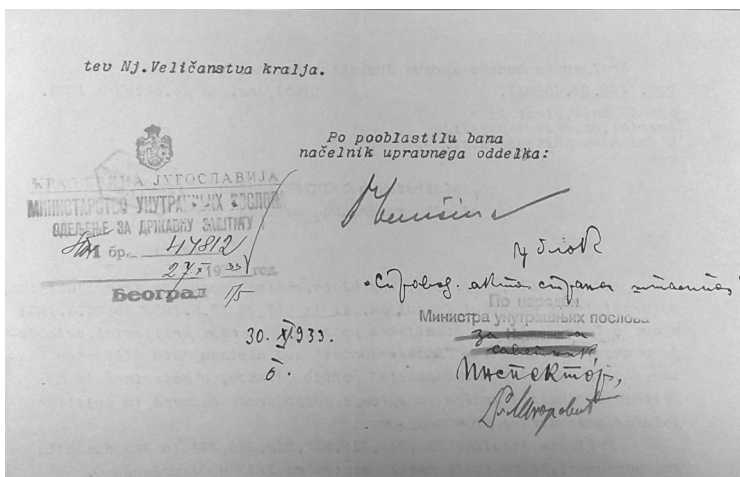 tev Nj.Veličanstva kralja.
Po pooblastilu bana
načelnik upravnega oddelka:
КРАЉЕВИНА ЈУГОСЛАВИЈА
МИНИСТАРСТВО УНУТРАШЊИХ ПОСЛОВА
ОДЕЉЕЊЕ ЗА ДРЖАВНУ ЗАШТИТУ I
бр. 47812
27 XI 1933 год.
Београд
у блок
По наредби
Министра унутрашњих послова
30. XI. 933.
Инспектор,